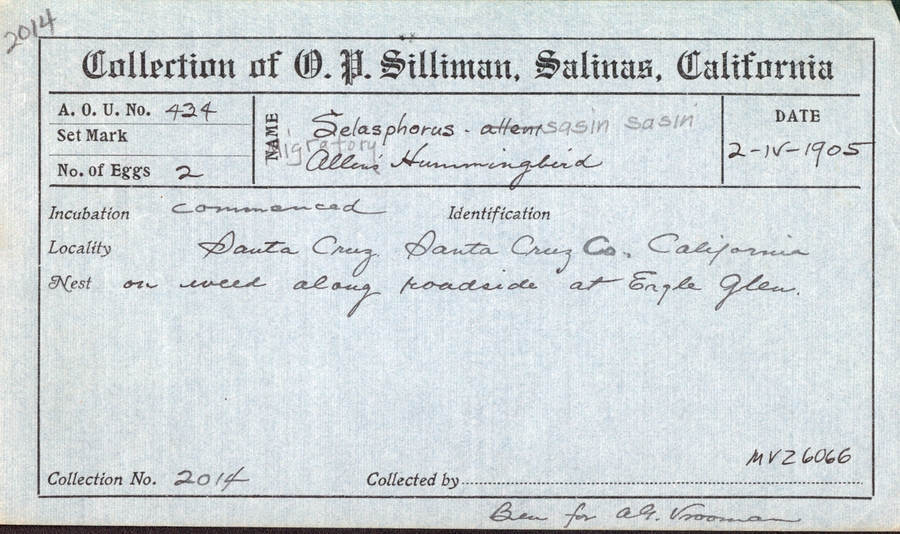 2014
Collection of O. P. Silliman, Salinas, California
A. O. U. No. 434
Set Mark
No. of Eggs 2
NAME
Selasphorus - alleni sasin sasin
migratory
Allen's Hummingbird
DATE
2-IV-1905
Incubation commenced Identification
Locality Santa Cruz. Santa Cruz Co., California
Nest on weed along roadside at Engle Glen.
MVZ 6066
Collection No. 2014 Collected by
Ben for A.G. Vrooman